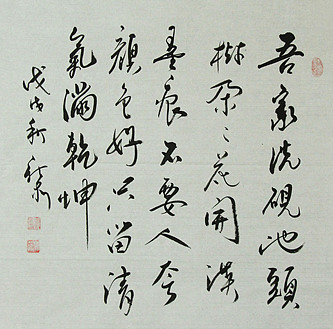 吾家洗硯池頭
樹朶〻花開淡
墨痕不要人夸
顔色好只留清
氣滿乾坤
戊戌新秋